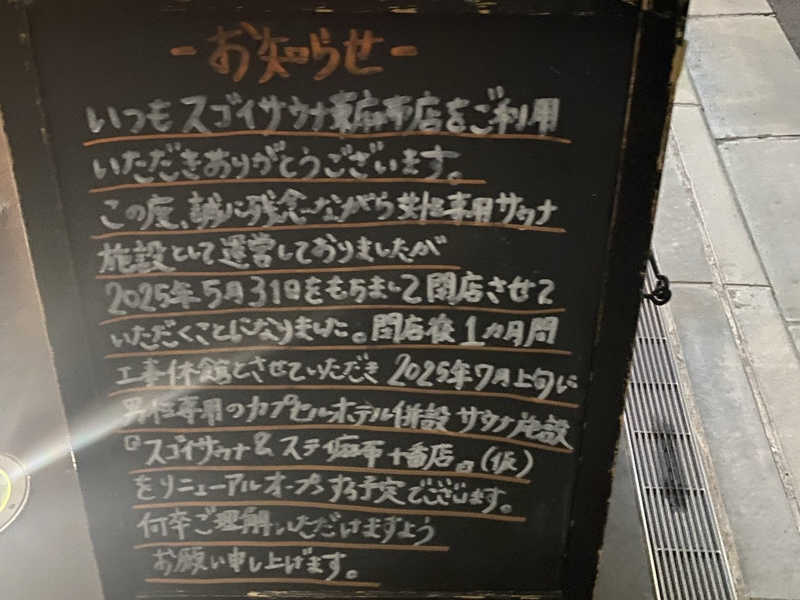 -お知らせ-
いつもスゴイサウナ東麻布店をご利用
いただきありがとうございます。
この度、誠に残念ながら女性専用サウナ
施設として運営しておりましたが
2025年5月31日をもちまして閉店させて
いただくことになりました。閉店後1カ月間
工事休館とさせていただき 2025年7月上旬に
男性専用のカプセルホテル併設サウナ施設
『スゴイサウナ&ステイ麻布十番店。』(仮)
をリニューアルオープンする予定でございます。
何卒ご理解いただけますよう
お願い申し上げます。